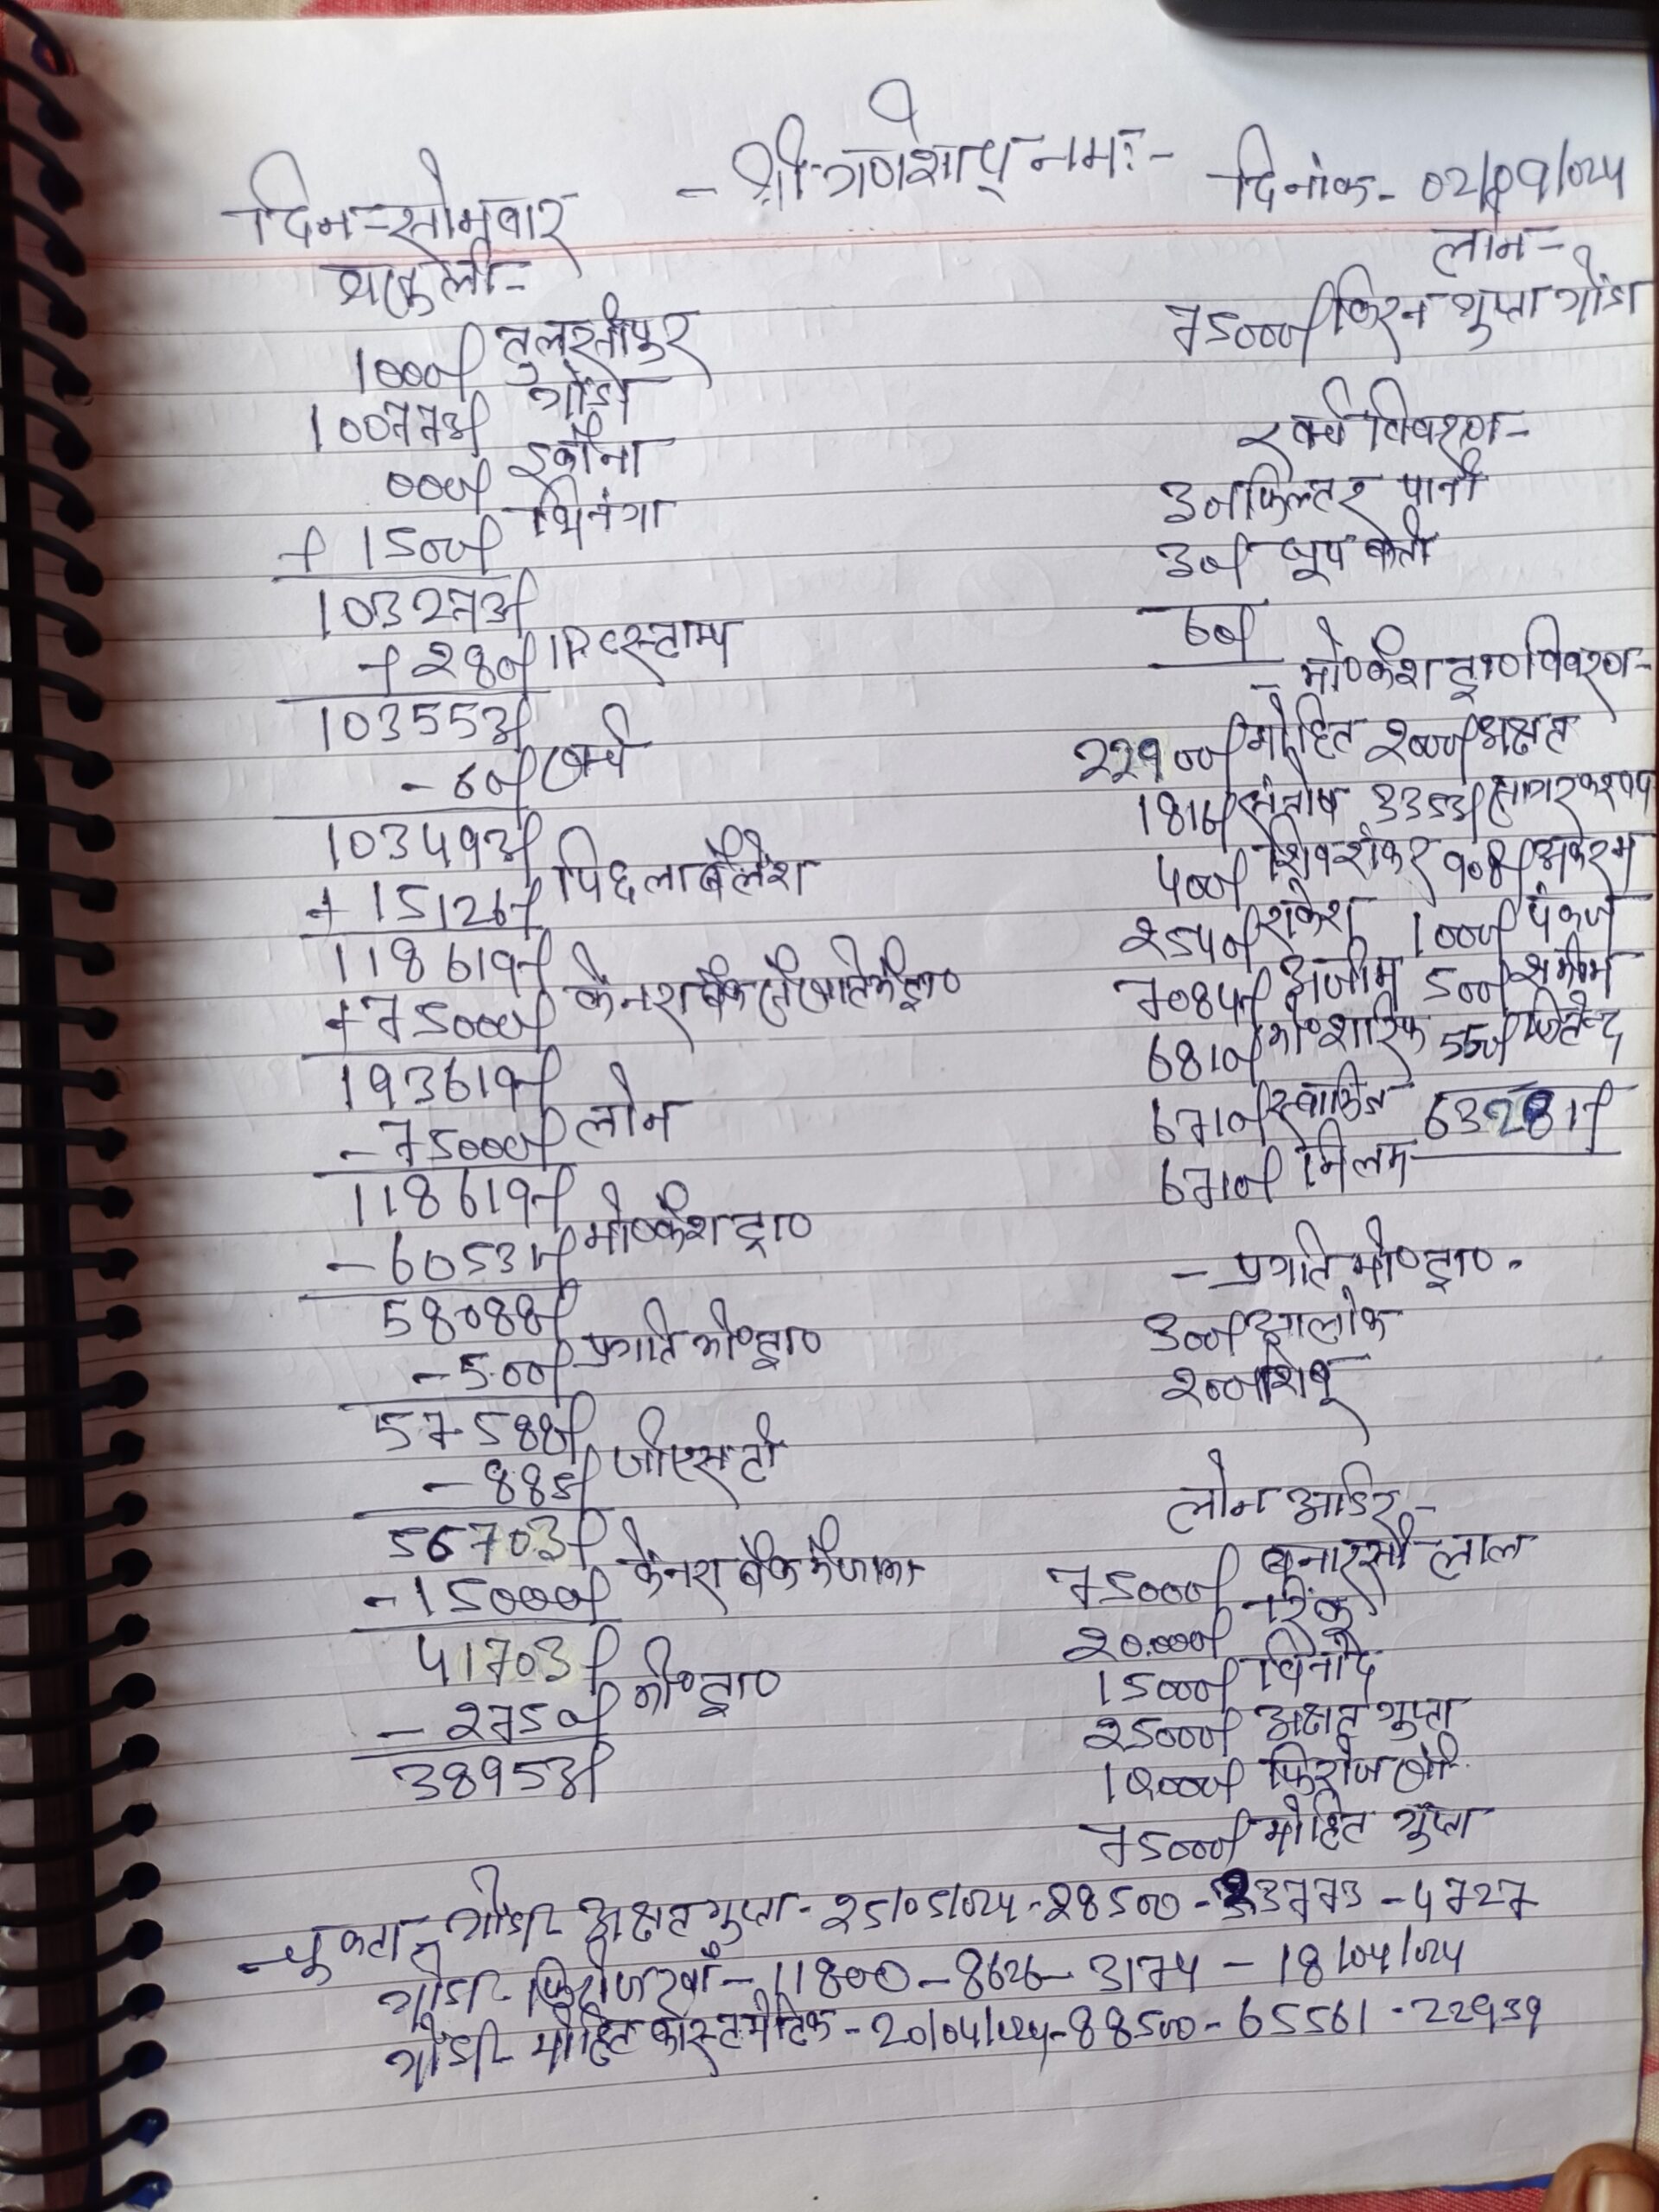 - श्री गणेशाय् नमः -
दिन - सोमवार
दिनांक - 02/09/024
वसूली -
1000/- तुलसीपुर
100773/- गोंडा
000/- इकौना
+ 1500/- भिनगा
103273/-
+ 280/- स्टाम्प
103553/-
- 60/- खर्च
103493/-
+ 15126/- पिछला बैलेंश
118619/-
+ 75000/- कैनरा बैंक से खाते में ट्रा०
193619/-
- 75000/- लोन
118619/-
- 60531/- मो० कैश ट्रा०
58088/-
- 500/- प्रगति मो० ट्रा०
57588/-
- 885/- जीएसटी
56703/-
- 15000/- कैनरा बैंक में जमा
41703/-
- 2750/- मो० ट्रा०
38953/-
लोन -
75000/- किरन गुप्ता गोंडा
खर्च विवरण -
30/- फिल्टर पानी
30/- धूप बत्ती
60/-
- मो० कैश ट्रा० विवरण -
22900/- मोहित 2000/- अक्षत
1816/- संतोष 3353/- सागर कश्यप
400/- शिवशंकर 908/- अकरम
2540/- राकेश 1000/- पंकज
7084/- अजीम 500/- शमीम
6810/- मो० शारिक 550/- जितेन्द्र
6710/- 63281/-
6710/-
- प्रगति मो० ट्रा० -
300/- आलोक
200/- शिबू
लोन आर्डर -
75000/- बनारसी लाल
20,000/- रिंकू
15000/- विनोद
25000/- अक्षत गुप्ता
10000/- फिरोज खाँ
75000/- मोहित गुप्ता
- चुकता - गोंडा - अक्षत गुप्ता - 25/05/024 - 28500 - 23773 - 4727
गोंडा - फिरोज खाँ - 11800 - 8626 - 3174 - 18/04/024
गोंडा - मोहित कास्टमेटिक - 20/04/024 - 88500 - 65561 - 22939